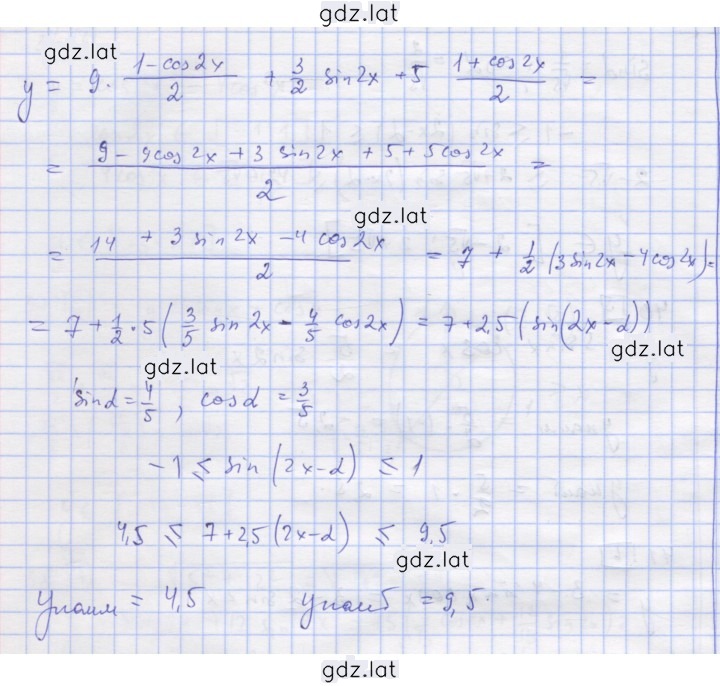 gdz.lat
gdz.lat
y = 9 · (1 - cos2x)/2 + 3/2 sin2x + 5 (1 + cos2x)/2 =
= (9 - 9cos2x + 3 sin2x + 5 + 5cos2x)/2 =
gdz.lat
= (14 + 3 sin2x - 4 cos2x)/2 = 7 + 1/2 (3sin2x - 4cos2x) =
= 7 + 1/2 · 5 (3/5 sin2x - 4/5 cos2x) = 7 + 2,5 (sin(2x - α))
gdz.lat
gdz.lat
sinα = 4/5 , cosα = 3/5
-1 ≤ sin (2x - α) ≤ 1
4,5 ≤ 7 + 2,5 (2x - α) ≤ 9,5
gdz.lat
yнаим = 4,5 yнаиб = 9,5.
gdz.lat